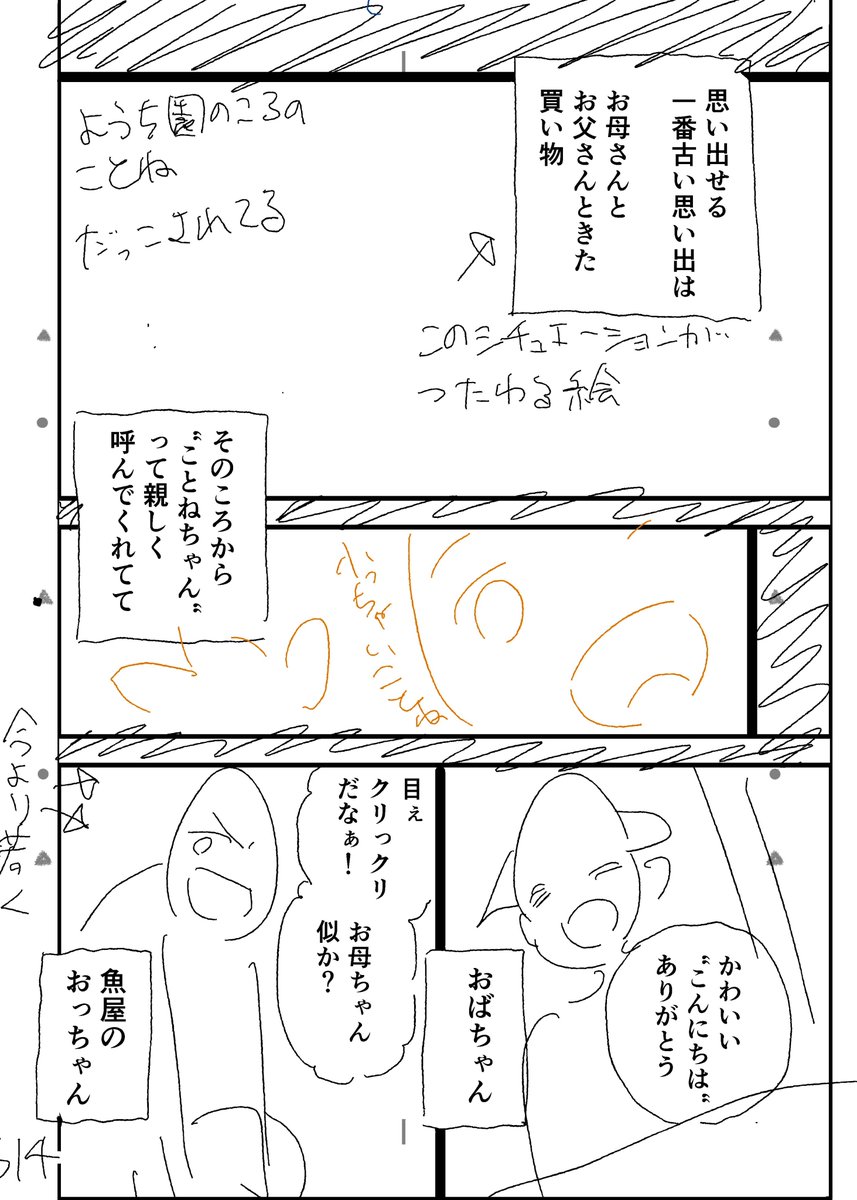 思い出せる
一番古い思い出は
お母さんと
お父さんときた
買い物
ようち園のころの
ことね
だっこされてる
このシチュエーションが
つたわる絵
そのころから
〝ことねちゃん〟
って親しく
呼んでくれてて
小っちゃいことね
かわいい
〝こんにちは〟
ありがとう
おばちゃん
目ぇ
クリっクリ
だなぁ！
お母ちゃん
似か？
魚屋の
おっちゃん
今より若く